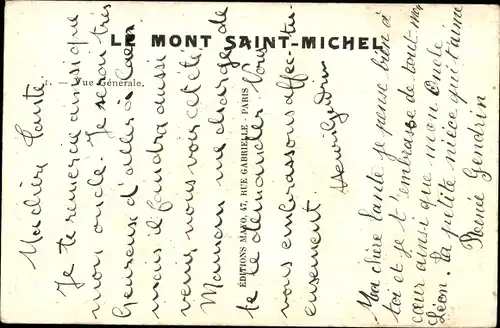 LE MONT SAINT-MICHEL
1. — Vue Générale.
EDITIONS MAYO, 47, RUE GABRIELLE - PARIS
Ma chère Tante
Je te remercie ainsi que
mon oncle. Je serais très
heureuse d'aller à Caen
mais il faudra aussi
venir nous voir cet été
Maman me charge de
te le demander. Nous
vous embrassons affectu-
eusement.
Henri Gendrin
Ma chère tante je pense bien à
toi et je t'embrasse de tout mon
cœur ainsi que mon Oncle
Léon. Ta petite nièce qui t'aime
Renée Gendrin